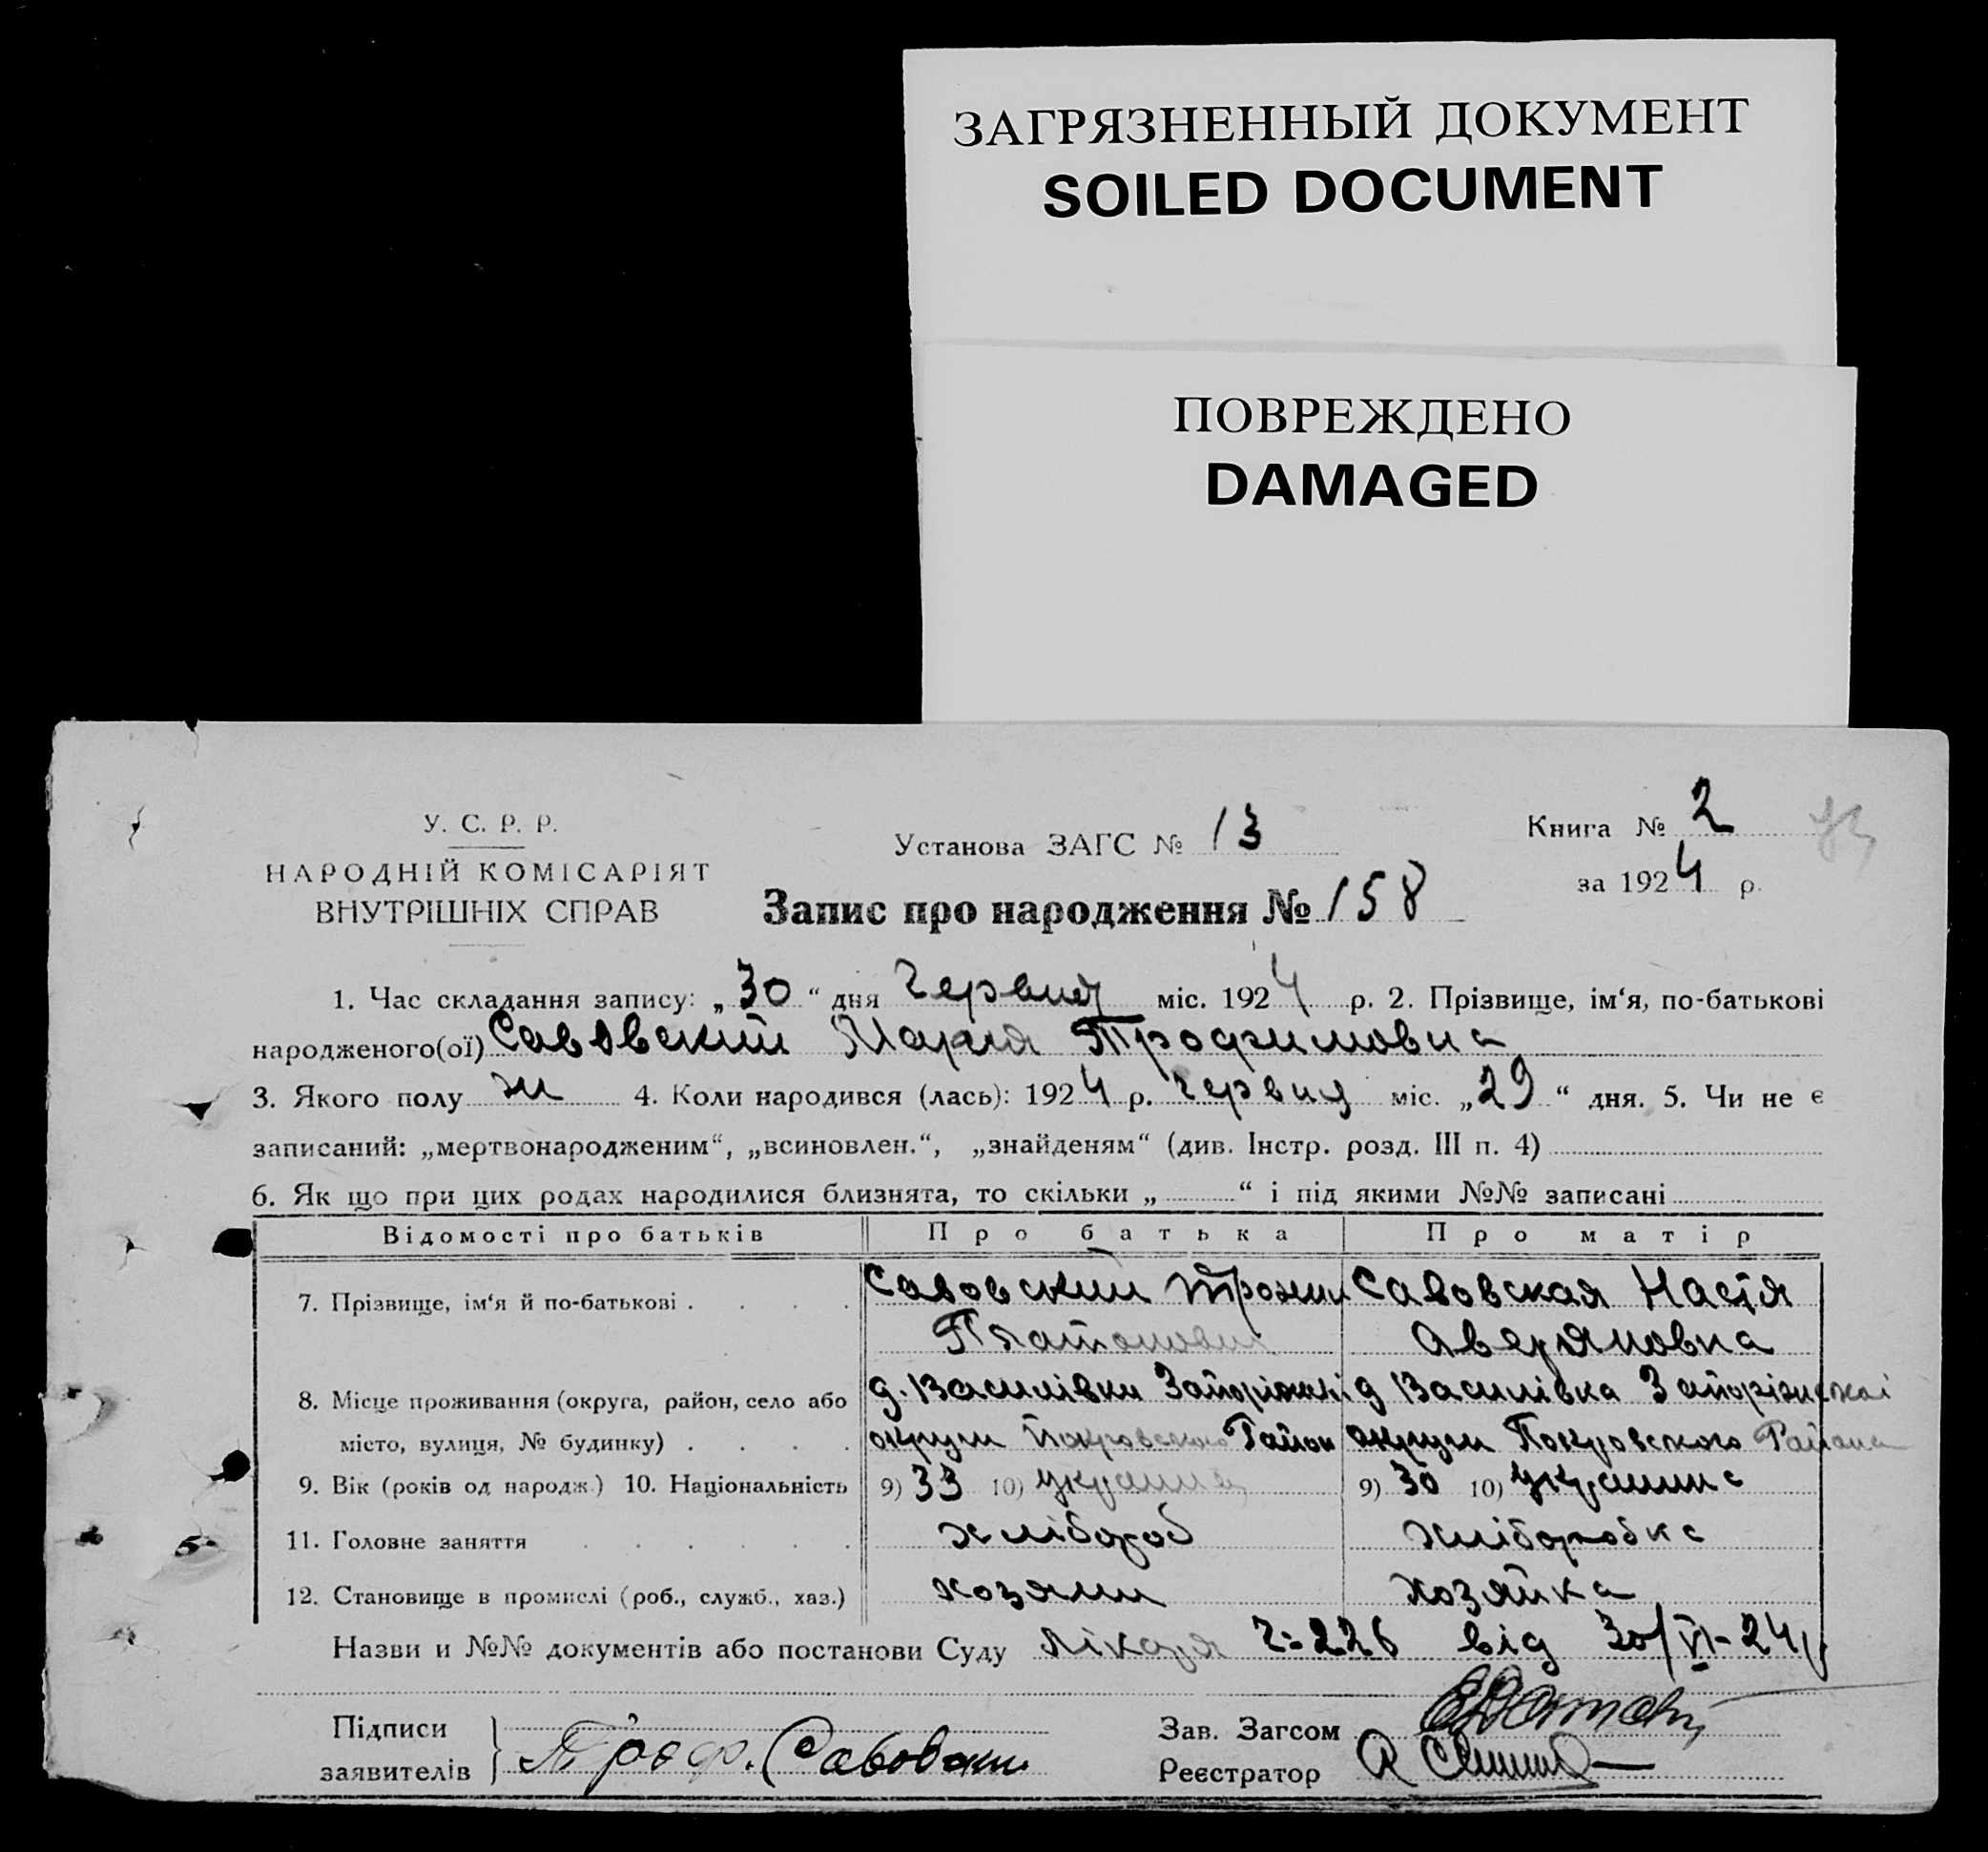 ЗАГРЯЗНЕННЫЙ ДОКУМЕНТ
SOILED DOCUMENT
ПОВРЕЖДЕНО
DAMAGED
У. С. Р. Р.
НАРОДНІЙ КОМІСАРІЯТ
ВНУТРІШНІХ СПРАВ
Установа ЗАГС № 13
Книга № 2
за 1924 р.
Запис про народження № 158
1. Час складання запису: „30“ дня Червня міс. 1924 р. 2. Прізвище, ім‘я, по-батькові
народженого(ої) Савовский Мария Трофимовна
3. Якого полу ж 4. Коли народився (лась): 1924 р. червня міс. „29“ дня. 5. Чи не є
записаний: „мертвонародженим“, „всиновлен.“, „знайденям“ (див. Інстр. розд. III п. 4)
6. Як що при цих родах народилися близнята, то скільки „ “ і під якими №№ записані
Відомості про батьків Про батька Про матір
7. Прізвище, ім‘я й по-батькові . . . . Савовский Савовская Настя
Платонович Аверяновна
8. Місце проживання (округа, район, село або д. Василівки д Василівка Запоріжскої
місто, вулиця, № будинку) . . . . округи Покровського Район округи Покровского Района
9. Вік (років од народж.) 10. Національність 9) 33 10) 9) 30 10) Українка
11. Головне заняття . . . . . . хлібороб хліборобка
12. Становище в промислі (роб., служб., хаз.) хозяин хозяйка
Назви и №№ документів або постанови Суду Лікаря Ч:226 від 30/VI-24р.
Підписи
заявителів Троф. Савовский
Зав. Загсом
Реєстратор